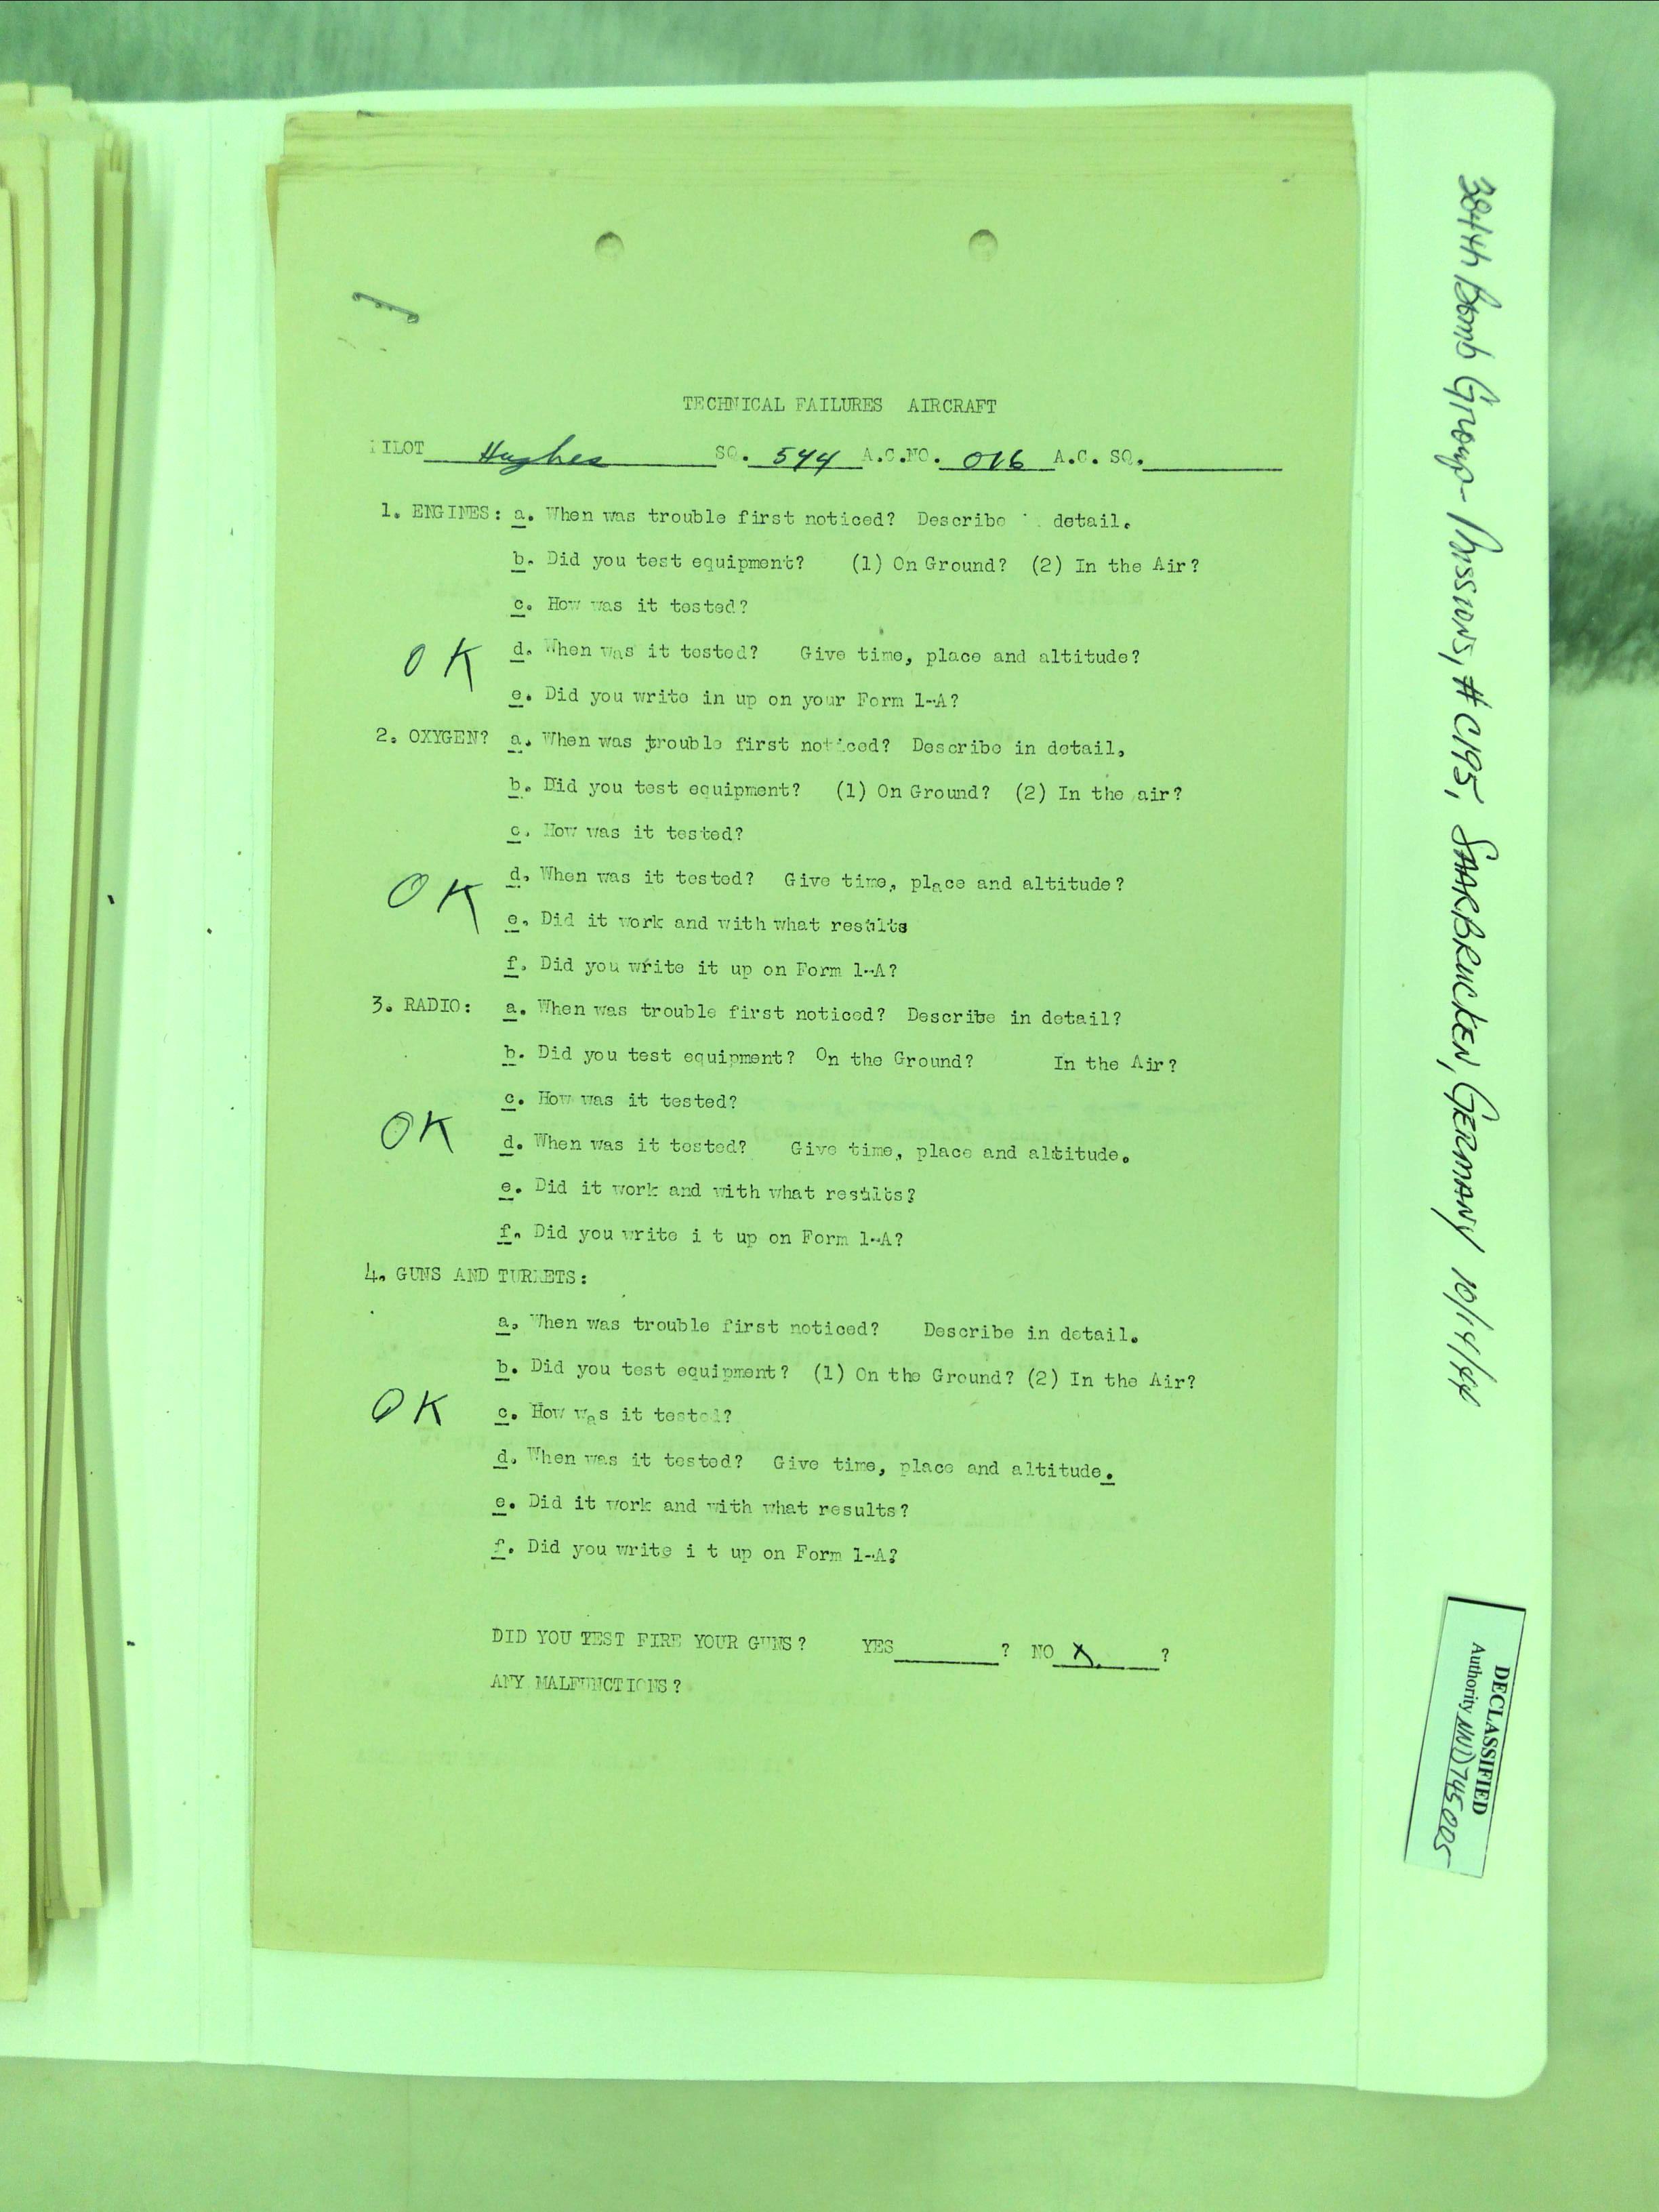 TECHNICAL FAILURES AIRCRAFT
PILOT Hughes SQ. 544 A.C.NO. 016 A.C. SQ.
1. ENGINES: a. When was trouble first noticed? Describe detail.
b. Did you test equipment? (1) On Ground? (2) In the Air?
c. How was it tested?
OK d. When was it tested? Give time, place and altitude?
e. Did you write in up on your Form 1-A?
2. OXYGEN? a. When was trouble first noticed? Describe in detail,
b. Did you test equipment? (1) On Ground? (2) In the air?
c. How was it tested?
OK d. When was it tested? Give time, place and altitude?
e. Did it work and with what results
f. Did you write it up on Form 1-A?
3. RADIO: a. When was trouble first noticed? Describe in detail?
b. Did you test equipment? On the Ground? In the Air?
c. How was it tested?
OK d. When was it tested? Give time, place and altitude.
e. Did it work and with what results?
f. Did you write i t up on Form 1-A?
4. GUNS AND TURRETS:
a. When was trouble first noticed? Describe in detail.
b. Did you test equipment? (1) On the Ground? (2) In the Air?
OK c. How was it tested?
d. When was it tested? Give time, place and altitude.
e. Did it work and with what results?
f. Did you write i t up on Form 1-A?
DID YOU TEST FIRE YOUR GUNS? YES ? NO X ?
ANY MALFUNCTIONS?
384th Bomb Group - Missions, # C195, SAARBRUCKEN, GERMANY 10/14/44
DECLASSIFIED
Authority NND745005